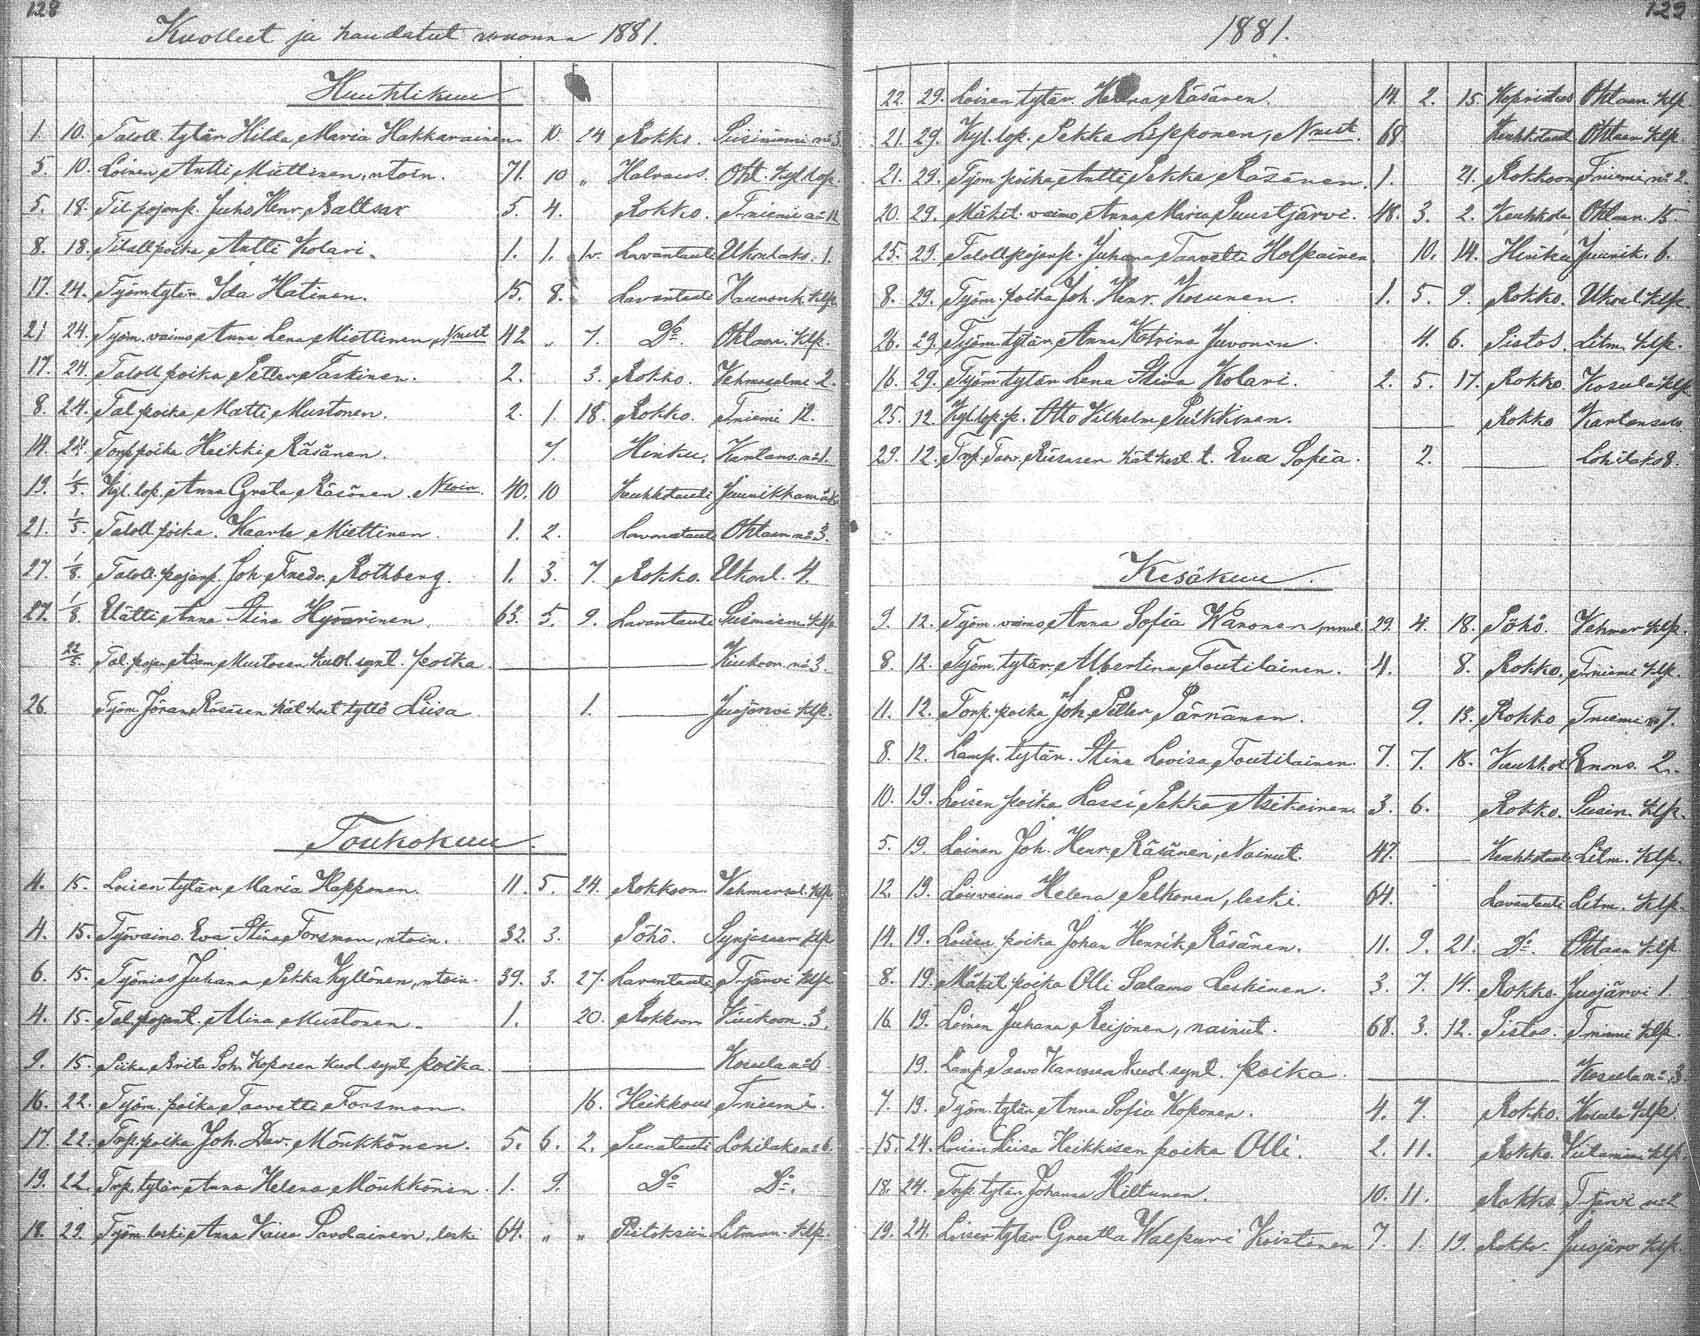 128
Kuolleet ja haudatut vuonna 1881.
Huhtikuu
1. 10. Taloll. tytär Hilda Maria Hakkarainen 10. 14 Rokko. Susiniemi no 3.
5. 10. Loinen Antti Miettinen, ntoin. 71. 10 " Halvaus. Oht. kyl. lop.
5. 18. Til. pojanp. Juho Henr. Baltsar 5. 4. Rokko. T.niemi no 12
8. 18. Tilall. poika Antti Kolari. 1. 1. Lavantauti Ukonlaks. 1.
17. 24. Työm. tytär Ida Hatinen. 15. 8. Lavantauti klp.
21 24. Työm. vaimo Anna Lena Miettinen, Nnut 42 " 7. Do. Ohtaan. klp.
17. 24. Taloll. poika Petter Taskinen. 2. 3. Rokko. Vehmasalmi 2.
8. 24. Tal. poika Matti Mustonen. 2. 1. 18. Rokko. T.niemi 12.
14. 24. Torp. poika Heikki Räsänen. 7. Hinku.
19. 1/5. Kyl. lop. Anna Greta Räsänen. Ntoin. 40. 10 Keuhkotauti Juunikkamäki
21. 1/5. Taloll. poika. Kaarle Miettinen. 1. 2. Lavantauti Ohtaan no 3.
27. 1/5. Taloll. pojanp. Joh. Fredr. Rothberg. 1. 3. 7. Rokko. Ukonl. 4.
27. 1/5. Elätti Anna Stina Hyvärinen 63. 5. 9. Lavantauti Susiniem. klp
22/5. Tal. pojan Adam Mustosen kuol. synt. poika Kiukoon. no 3.
26. Työm. Jöran Räsäsen hät. kast. tyttö Liisa 1. Juojärvi klp.
Toukokuu.
4. 15. Loisen tytär Maria Happonen. 11. 5. 24. Rokkoon. Vehmersal. klp.
4. 15. Työvaimo. Eva Stina Forsman, ntoin. 32. 3. Pöhö. klp
6. 15. Työmies Juhana Pekka Kyllönen, ntoin. 39. 3. 27. Lavantauti T.järvi klp
4. 15. Tal. pojant. Alina Mustonen. 1. 20. Rokkoon Kiukoon. 3.
9. 15. Piika Brita Soh. Koposen kuol. synt. poika. Kosula no 6.
16. 22. Työm. poika Taavetti Forsman. 16. Heikkous T.niemi.
17. 22. Trp. poika Joh. Dav. Mönkkönen. 5. 6. 2. Punatauti Lohilaks no 6.
19. 22. Trp. tytär Anna Helena Mönkkönen. 1. 9. Do Do.
18. 29. Työm. leski Anna Kaisa Savolainen, leski 64. " " Pistoksiin Litman. klp.
1881.
129
22. 29. Loisen tytär. Helena Räsänen. 14. 2. 15. Ohtaan klp
21. 29. Kyl. lop. Pekka Lipponen, Nnut. 68. Keuhkotauti Ohtaan klp.
21. 29. Työm. poika Antti Pekka Räsänen. 1. 21. Rokkoon T.niemi no 2.
20. 29. Mäkit. vaimo, Anna Maria Puustjärvi. 48. 3. 2. Ohtaan. 15
25. 29. Taloll. pojanp. Juhana Taavetti Holpainen. 10. 14. Hinku Juunik. 6.
8. 29. Työm. poika Joh. Henr. Kosunen. 1. 5. 9. Rokko. Ukonl. klp.
26. 29. Työm. tytär, Anna Katrina Juvonen 4. 6. Pistos. Litm. klp.
16. 29. Työm. tytär Lena Stiva Kolari. 2. 5. 17. Rokko. Kosula klp
25. 12. Kyl. lop. p. Otto Wilhelm Puikkinen. Rokko
29. 12. Trp. Taav. Räsäsen hät. kast. t. Eva Sofia. 2. Lohilaks 8.
Kesäkuu.
9. 12. Työm. vaimo Anna Sofia Wänönen, nnut. 29. 4. 18. Pöhö. Vehmer. klp.
8. 12. Työm. tytär Albertina Toutilainen. 4. 8. Rokko. T.niemi klp.
11. 12. Torp. poika Joh. Petter Pärnänen. 9. 13. Rokko T.niemi no 7.
8. 12. Lamp. tytär. Stina Lovisa Toutilainen. 7. 7. 18. Kuuhkot Enons. 2.
10. 19. Loisen poika Lassi Pekka Asikainen 3. 6. Rokko. Susin. klp.
5. 19. Loinen Joh. Henr. Räsänen, Nainut. 47. Keuhkotauti Litm. klp.
12. 19. Lois. vaimo Helena Pelkonen, leski. 64. Lavantauti Litm. klp.
14. 19. Loisen poika Johan Henrik Räsänen. 11. 9. 21. Do Ohtaan klp
8. 19. Mäkit. poika Olli Salamo Leskinen. 3. 7. 14. Rokko. Juojärvi 1.
16. 19. Loinen Juhana Reijonen, nainut. 68. 3. 12. Pistos. T.niemi klp
19. Lamp. Paavo kuol. synt. poika. Kosula no 3
7. 19. Työm. tytär Anna Sofia Koponen. 4. 7 Rokko. Kosula klp
15. 24. Loisen Liisa Heikkisen poika Olli. 2. 11. Rokko. klp.
18. 24. Trp. tytär Johanna Hiltunen. 10. 11. Rokko T.järvi no 2
19. 24. Loisen tytär Greetta Walpuri Koistinen 7. 1. 19. Rokko. Juojärv klp.